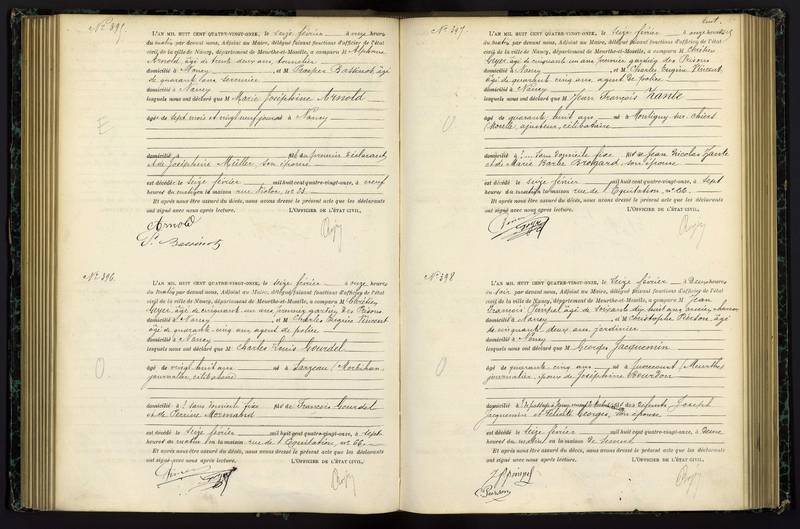 No. 395.
L'AN MIL HUIT CENT QUATRE-VINGT-ONZE, le seize février à onze heures
du matin par devant nous, Adjoint au Maire, délégué faisant fonctions d'officier de l'état
civil de la ville de Nancy, département de Meurthe-et-Moselle, a comparu M Alphonse
Arnold, âgé de trente deux ans, tonnelier
domicilié à Nancy, et M Prosper Bassinot, âgé
de quarante ans
domicilié à Nancy
lesquels nous ont déclaré que Marie Joséphine Arnold
E
âgée de sept mois et vingt neuf jours née à Nancy
domicilié à fille du premier déclarant
et de Joséphine Müller, son épouse
est décédée le seize février mil huit cent quatre-vingt-onze, à neuf
heures du matin en la maison rue n° 33
Et après nous être assuré du décès, nous avons dressé le présent acte que les déclarants
ont signé avec nous après lecture. L'OFFICIER DE L'ÉTAT CIVIL,
Arnold
Bassinot
No. 396.
L'AN MIL HUIT CENT QUATRE-VINGT-ONZE, le seize février à onze heures
du matin par devant nous, Adjoint au Maire, délégué faisant fonctions d'officier de l'état
civil de la ville de Nancy, département de Meurthe-et-Moselle, a comparu M Chrétien
Geyer, âgé de cinquante un ans, premier gardien des Prisons
domicilié à Nancy, et M Charles Eugène Vincent
âgé de quarante-cinq ans, agent de police
domicilié à Nancy
lesquels nous ont déclaré que M Charles Louis Gourdel
O.
âgé de vingt huit ans né à Sarzeau (Morbihan)
journalier, célibataire
domicilié à sans domicile fixe fils de François Gourdel
et de Perrine
est décédé le seize février mil huit cent quatre-vingt-onze, à sept
heures du matin en la maison rue de l'Equitation, no. 66
Et après nous être assuré du décès, nous avons dressé le présent acte que les déclarants
ont signé avec nous après lecture. L'OFFICIER DE L'ÉTAT CIVIL,
No. 397.
L'AN MIL HUIT CENT QUATRE-VINGT-ONZE, le seize février à onze heures
du matin par devant nous, Adjoint au Maire, délégué faisant fonctions d'officier de l'état
civil de la ville de Nancy, département de Meurthe-et-Moselle, a comparu M Chrétien
Geyer, âgé de cinquante un ans, premier gardien des Prisons
domicilié à Nancy, et M Charles Eugène Vincent,
âgé de quarante cinq ans, agent de police
domicilié à Nancy
lesquels nous ont déclaré que M Jean François Zante
O
âgé de quarante huit ans né à Montigny-sur-Chiers
(Moselle) ajusteur, célibataire
domicilié à sans domicile fixe fils de Jean Nicolas Zante
et de Marie Barbe Brogard, son épouse
est décédé le seize février mil huit cent quatre-vingt-onze, à sept
heures du matin en la maison rue de l'Equitation, no. 66
Et après nous être assuré du décès, nous avons dressé le présent acte que les déclarants
ont signé avec nous après lecture. L'OFFICIER DE L'ÉTAT CIVIL,
No. 398
L'AN MIL HUIT CENT QUATRE-VINGT-ONZE, le seize février à deux heures
du soir par devant nous, Adjoint au Maire, délégué faisant fonctions d'officier de l'état
civil de la ville de Nancy, département de Meurthe-et-Moselle, a comparu M Jean
François âgé de soixante dix huit ans, ancien
domicilié à Nancy, et M Christophe Pierson âgé
de cinquante deux ans, jardinier
domicilié à Nancy
lesquels nous ont déclaré que M Georges Jacquemin
âgé de quarante-cinq ans né à (Meurthe)
journalier, époux de Joséphine Bourdon
domicilié à fils des défunts Joseph
Jacquemin et Georges, son épouse
est décédé le seize février mil huit cent quatre-vingt-onze, à
heures du matin en la maison de secours
Et après nous être assuré du décès, nous avons dressé le présent acte que les déclarants
ont signé avec nous après lecture. L'OFFICIER DE L'ÉTAT CIVIL,
Pierson